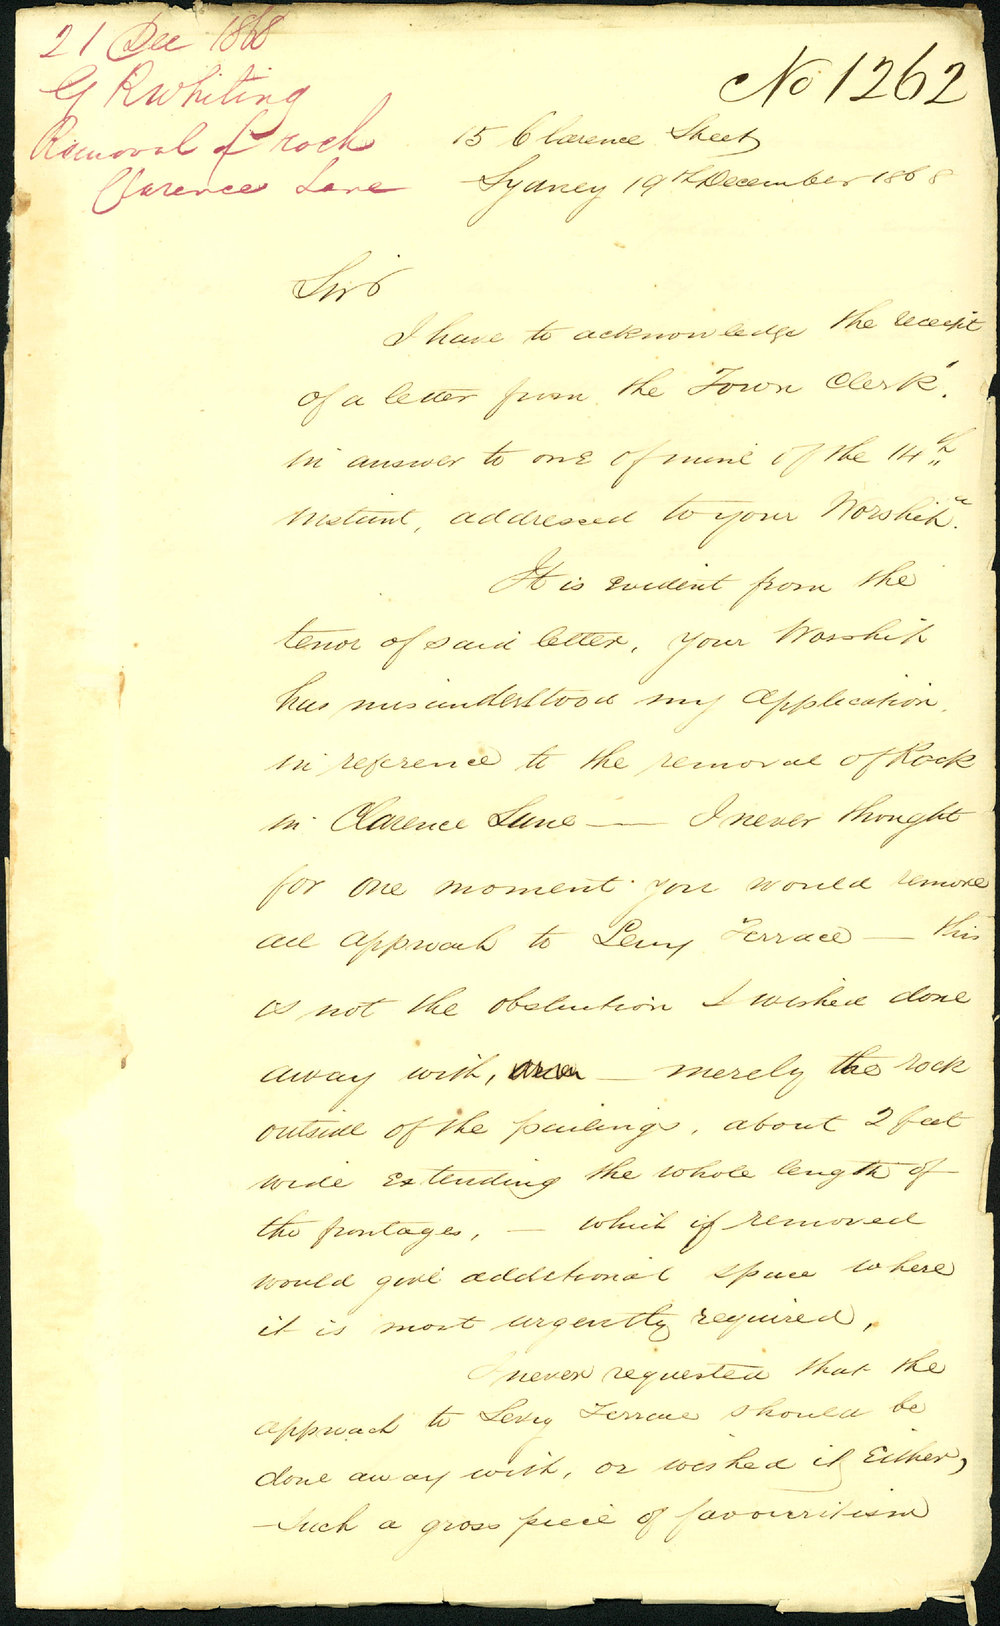 21 Dec 1868
G R Whiting
Removal of rock
Clarence Lane
No 1262
15 Clarence Street
Sydney 19th December 1868
Sir
I have to acknowledge the receipt
of a letter from the "Town Clerk".
in answer to one of mine of the 14th
instant, addressed to your Worship".
It is evident from the
tenor of said letter, your Worship
has misunderstood my application,
in reference to the removal of Rock
in Clarence Lane — I never thought
for one moment you would remove
all approach to Levy Terrace — this
is not the obstruction I wished done
away with, — merely the rock
outside of the pailings, about 2 feet
wide extending the whole length of
the frontages, — which if removed
would give additional space where
it is most urgently required,
I never requested that the
approach to Levey Terrace should be
done away with, or wished it Either,
— Such a gross piece of favouritism